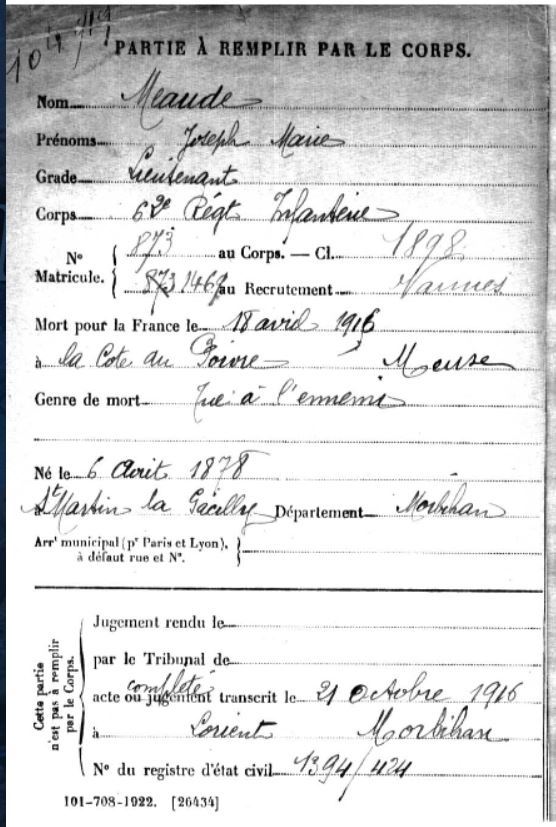 PARTIE À REMPLIR PAR LE CORPS.
Nom Meaude
Prénoms Joseph Marie
Grade Lieutenant
Corps 62e Régt Infanterie
Nº Matricule. { 873 au Corps. — Cl. 1898
873 1469 au Recrutement Vannes
Mort pour la France le 18 avril 1916
à la Cote du Poivre Meuse
Genre de mort Tué à l'ennemi
Né le 6 Août 1878
à St Martin la Gacilly Département Morbihan
Arrt municipal (pr Paris et Lyon),
à défaut rue et Nº.
Cette partie n'est pas à remplir par le Corps.
Jugement rendu le
par le Tribunal de
complété
acte ou jugement transcrit le 21 octobre 1916
à Lorient Morbihan
Nº du registre d'état civil 1394/424
101-708-1922. [26434]